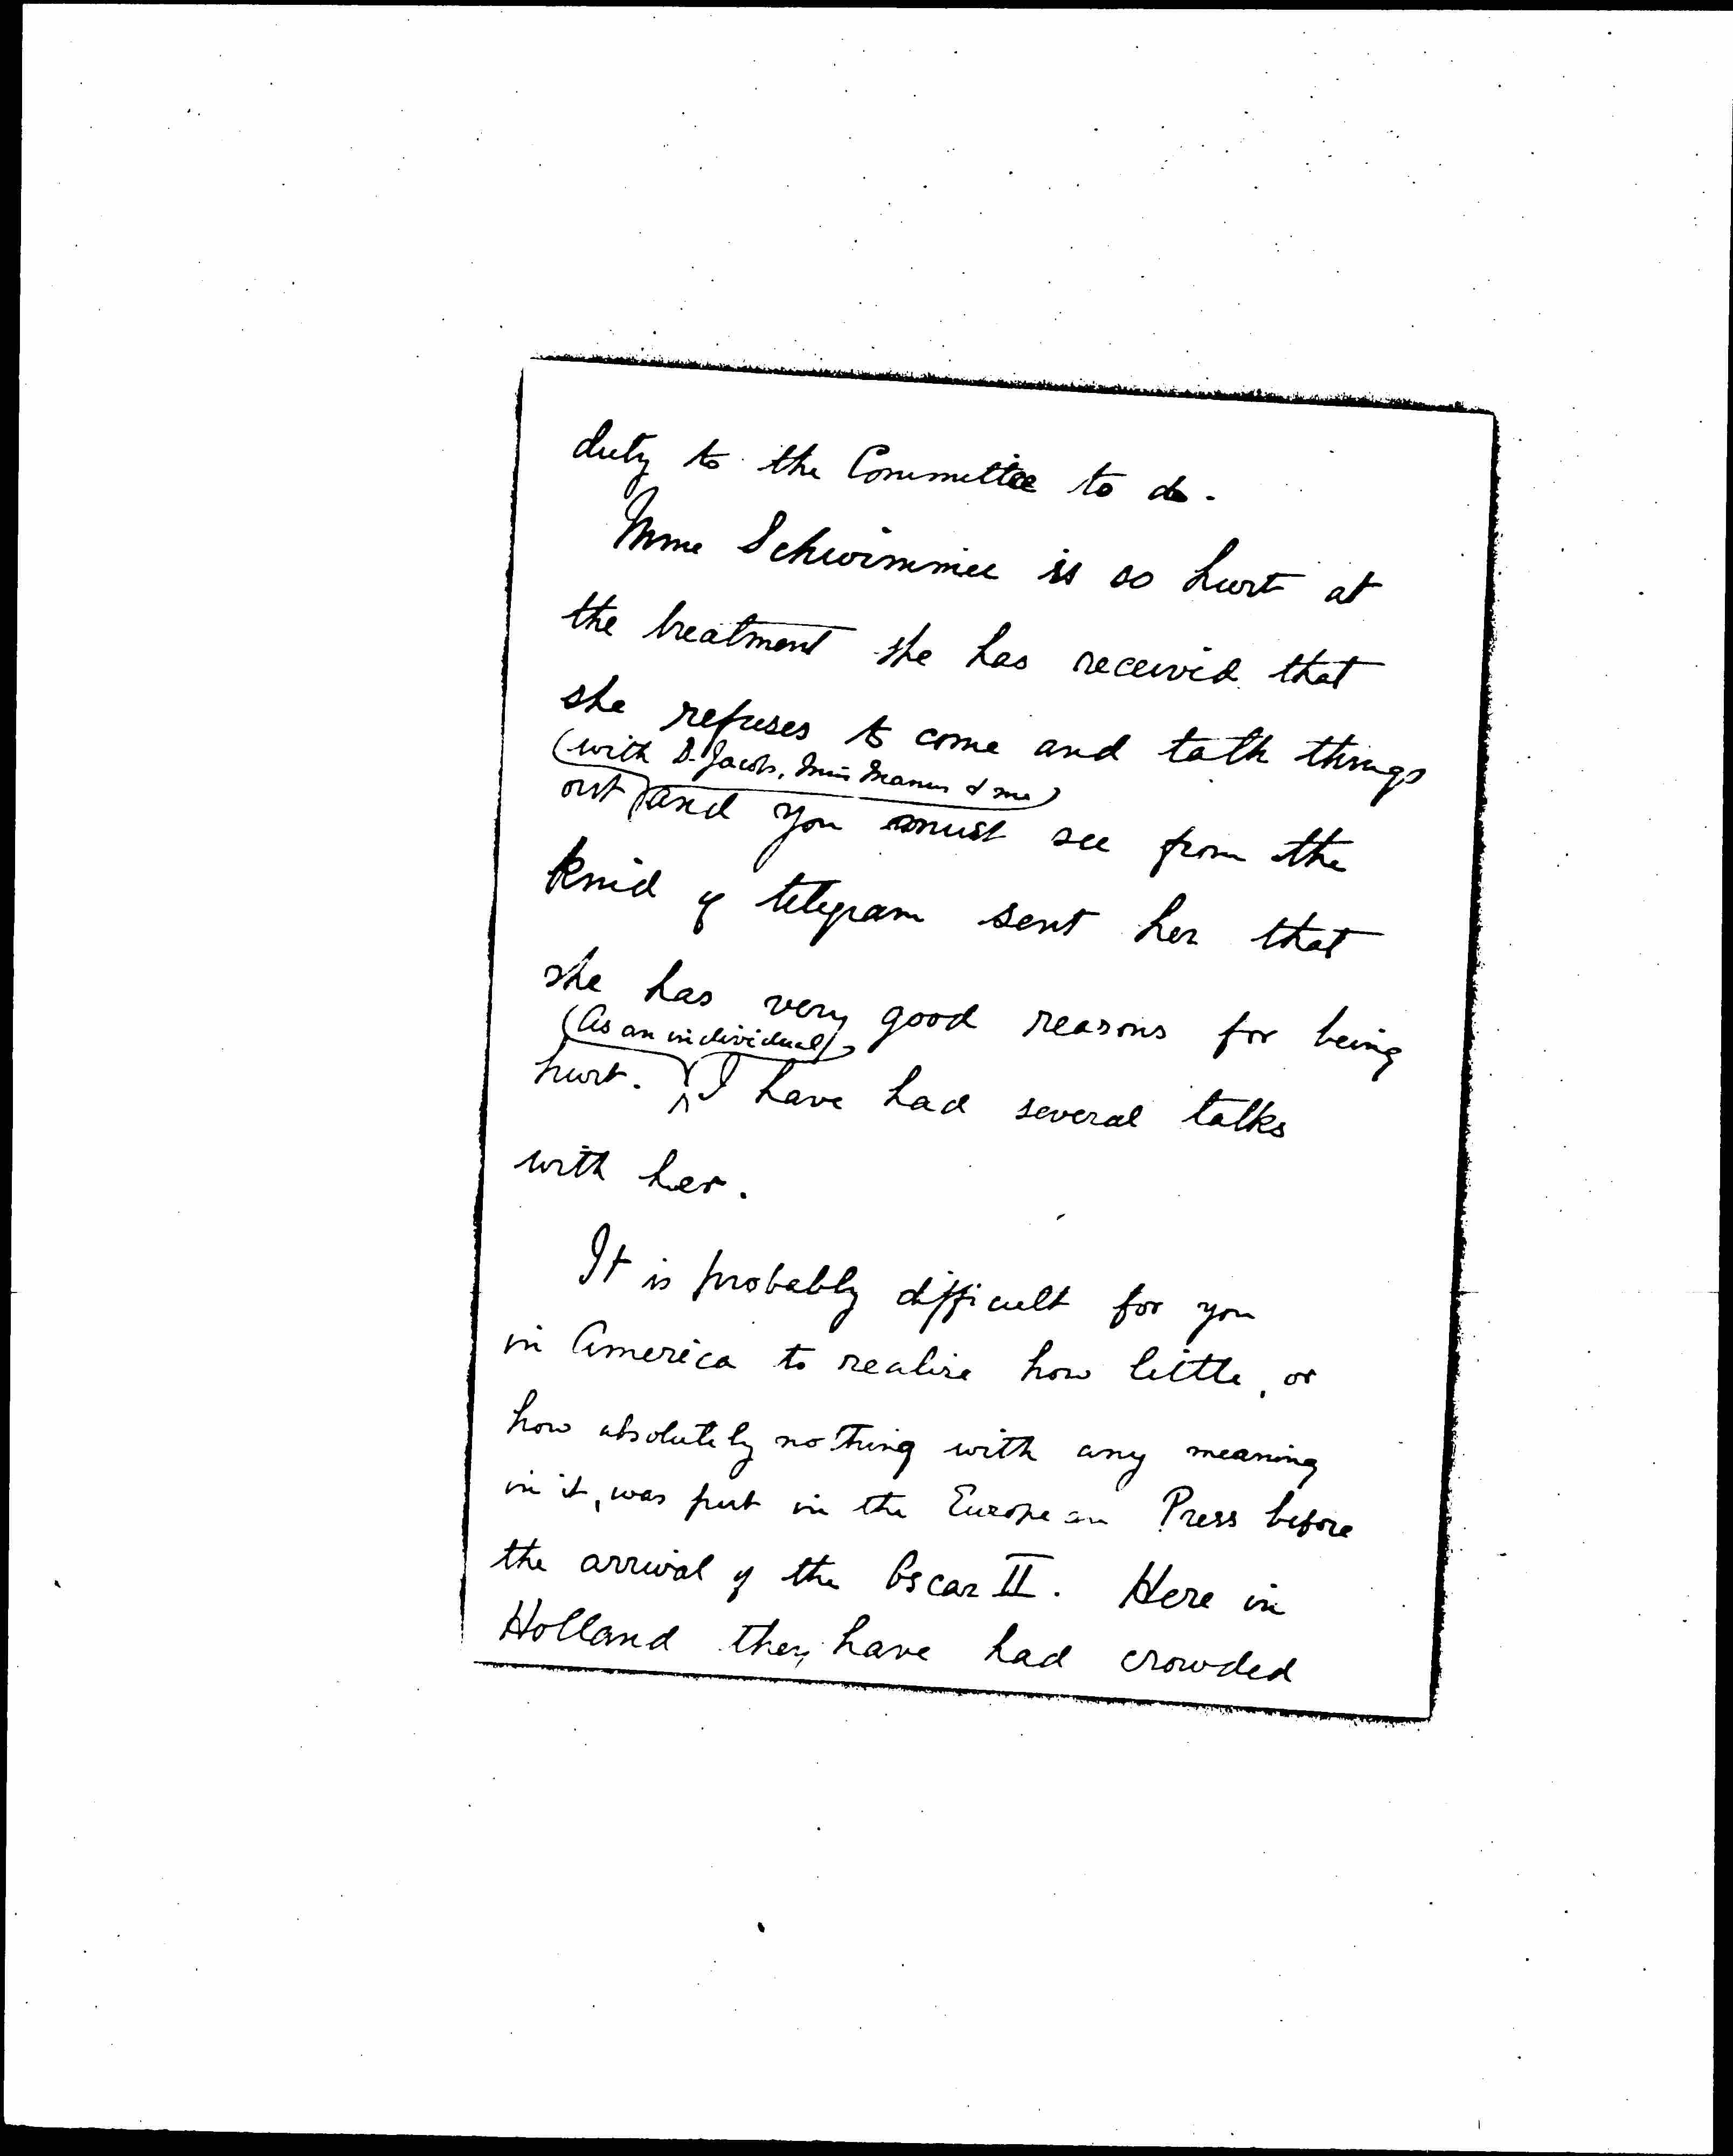 duty to the Committee to do.
Mme Schwimmer is so hurt at
the treatment she has received that
she refuses to come and talk things
(with Dr Jacobs, Miss Manus & me)
out and you must see from the
kind of telegram sent her that
she has very good reasons for being
(As an individual)
hurt. I have had several talks
with her.
It is probably difficult for you
in America to realise how little, or
how absolutely nothing with any meaning
in it, was put in the European Press before
the arrival of the Oscar II. Here in
Holland they have had crowded